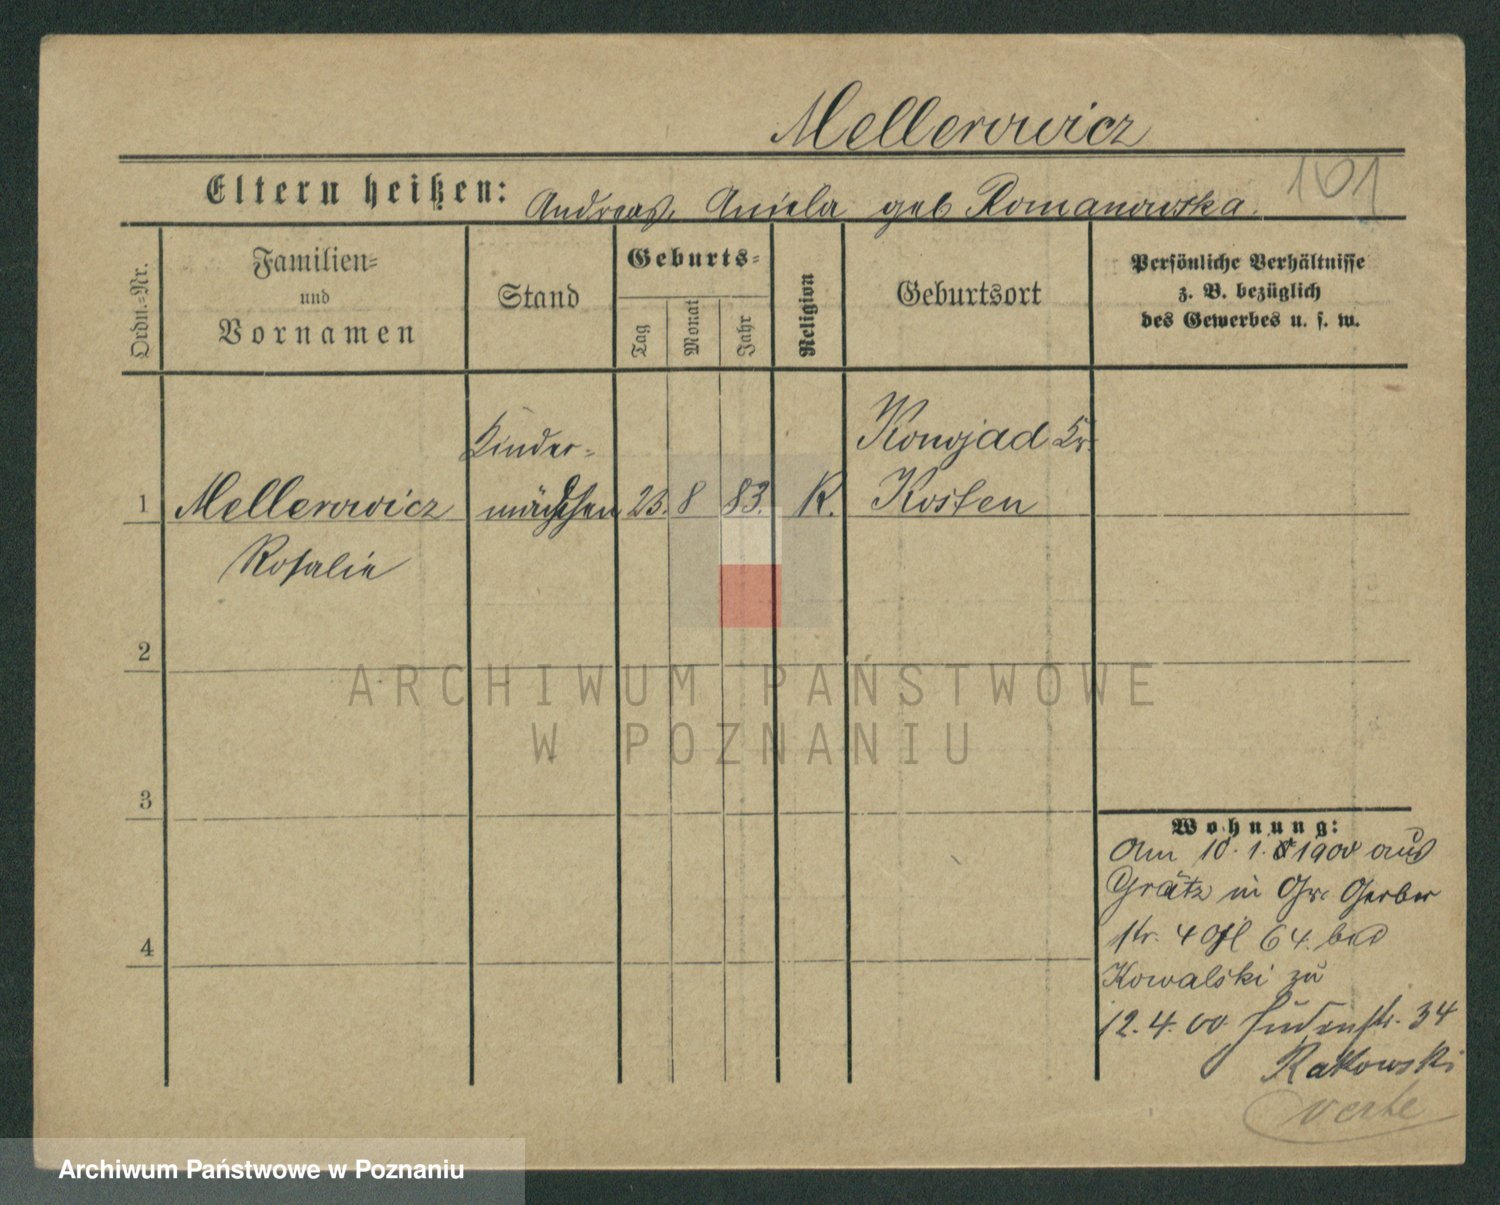 Mellerowicz
101
Eltern heißen: Andreas, Aniela geb Romanowska.
Ordn.=Nr.
Familien=
und
Vornamen
Stand
Geburts=
Tag
Monat
Jahr
Religion
Geburtsort
Persönliche Verhältnisse
z. B. bezüglich
des Gewerbes u. s. w.
Kinder=
Konojad Kr.
1 Mellerowicz mädchen 23. 8 83. K. Kosten
Rosalie
2
3
4
Wohnung:
Am 10. 1. 1900 aus
Grätz in Gr. Gerber
str. 4 64. bei
Kowalski zu
12. 4. 00 Judenstr. 34
Ratkowski
verte
ARCHIWUM PAŃSTWOWE
W POZNANIU
Archiwum Państwowe w Poznaniu